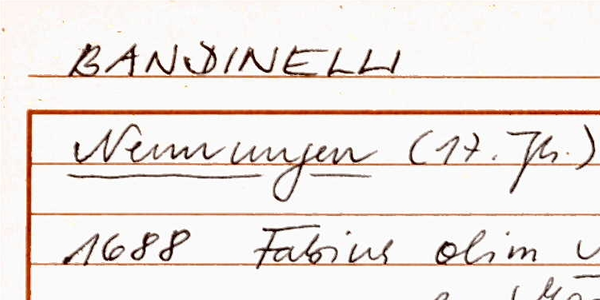 BANDINELLI
Nennungen (17. Jh.)
1688 Fabius olim